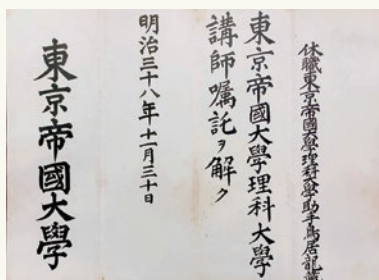 休職東京帝國大學理科大學助手鳥居龍藏
東京帝國大學理科大學
講師嘱託ヲ解ク
明治三十八年十一月三十日
東京帝國大學